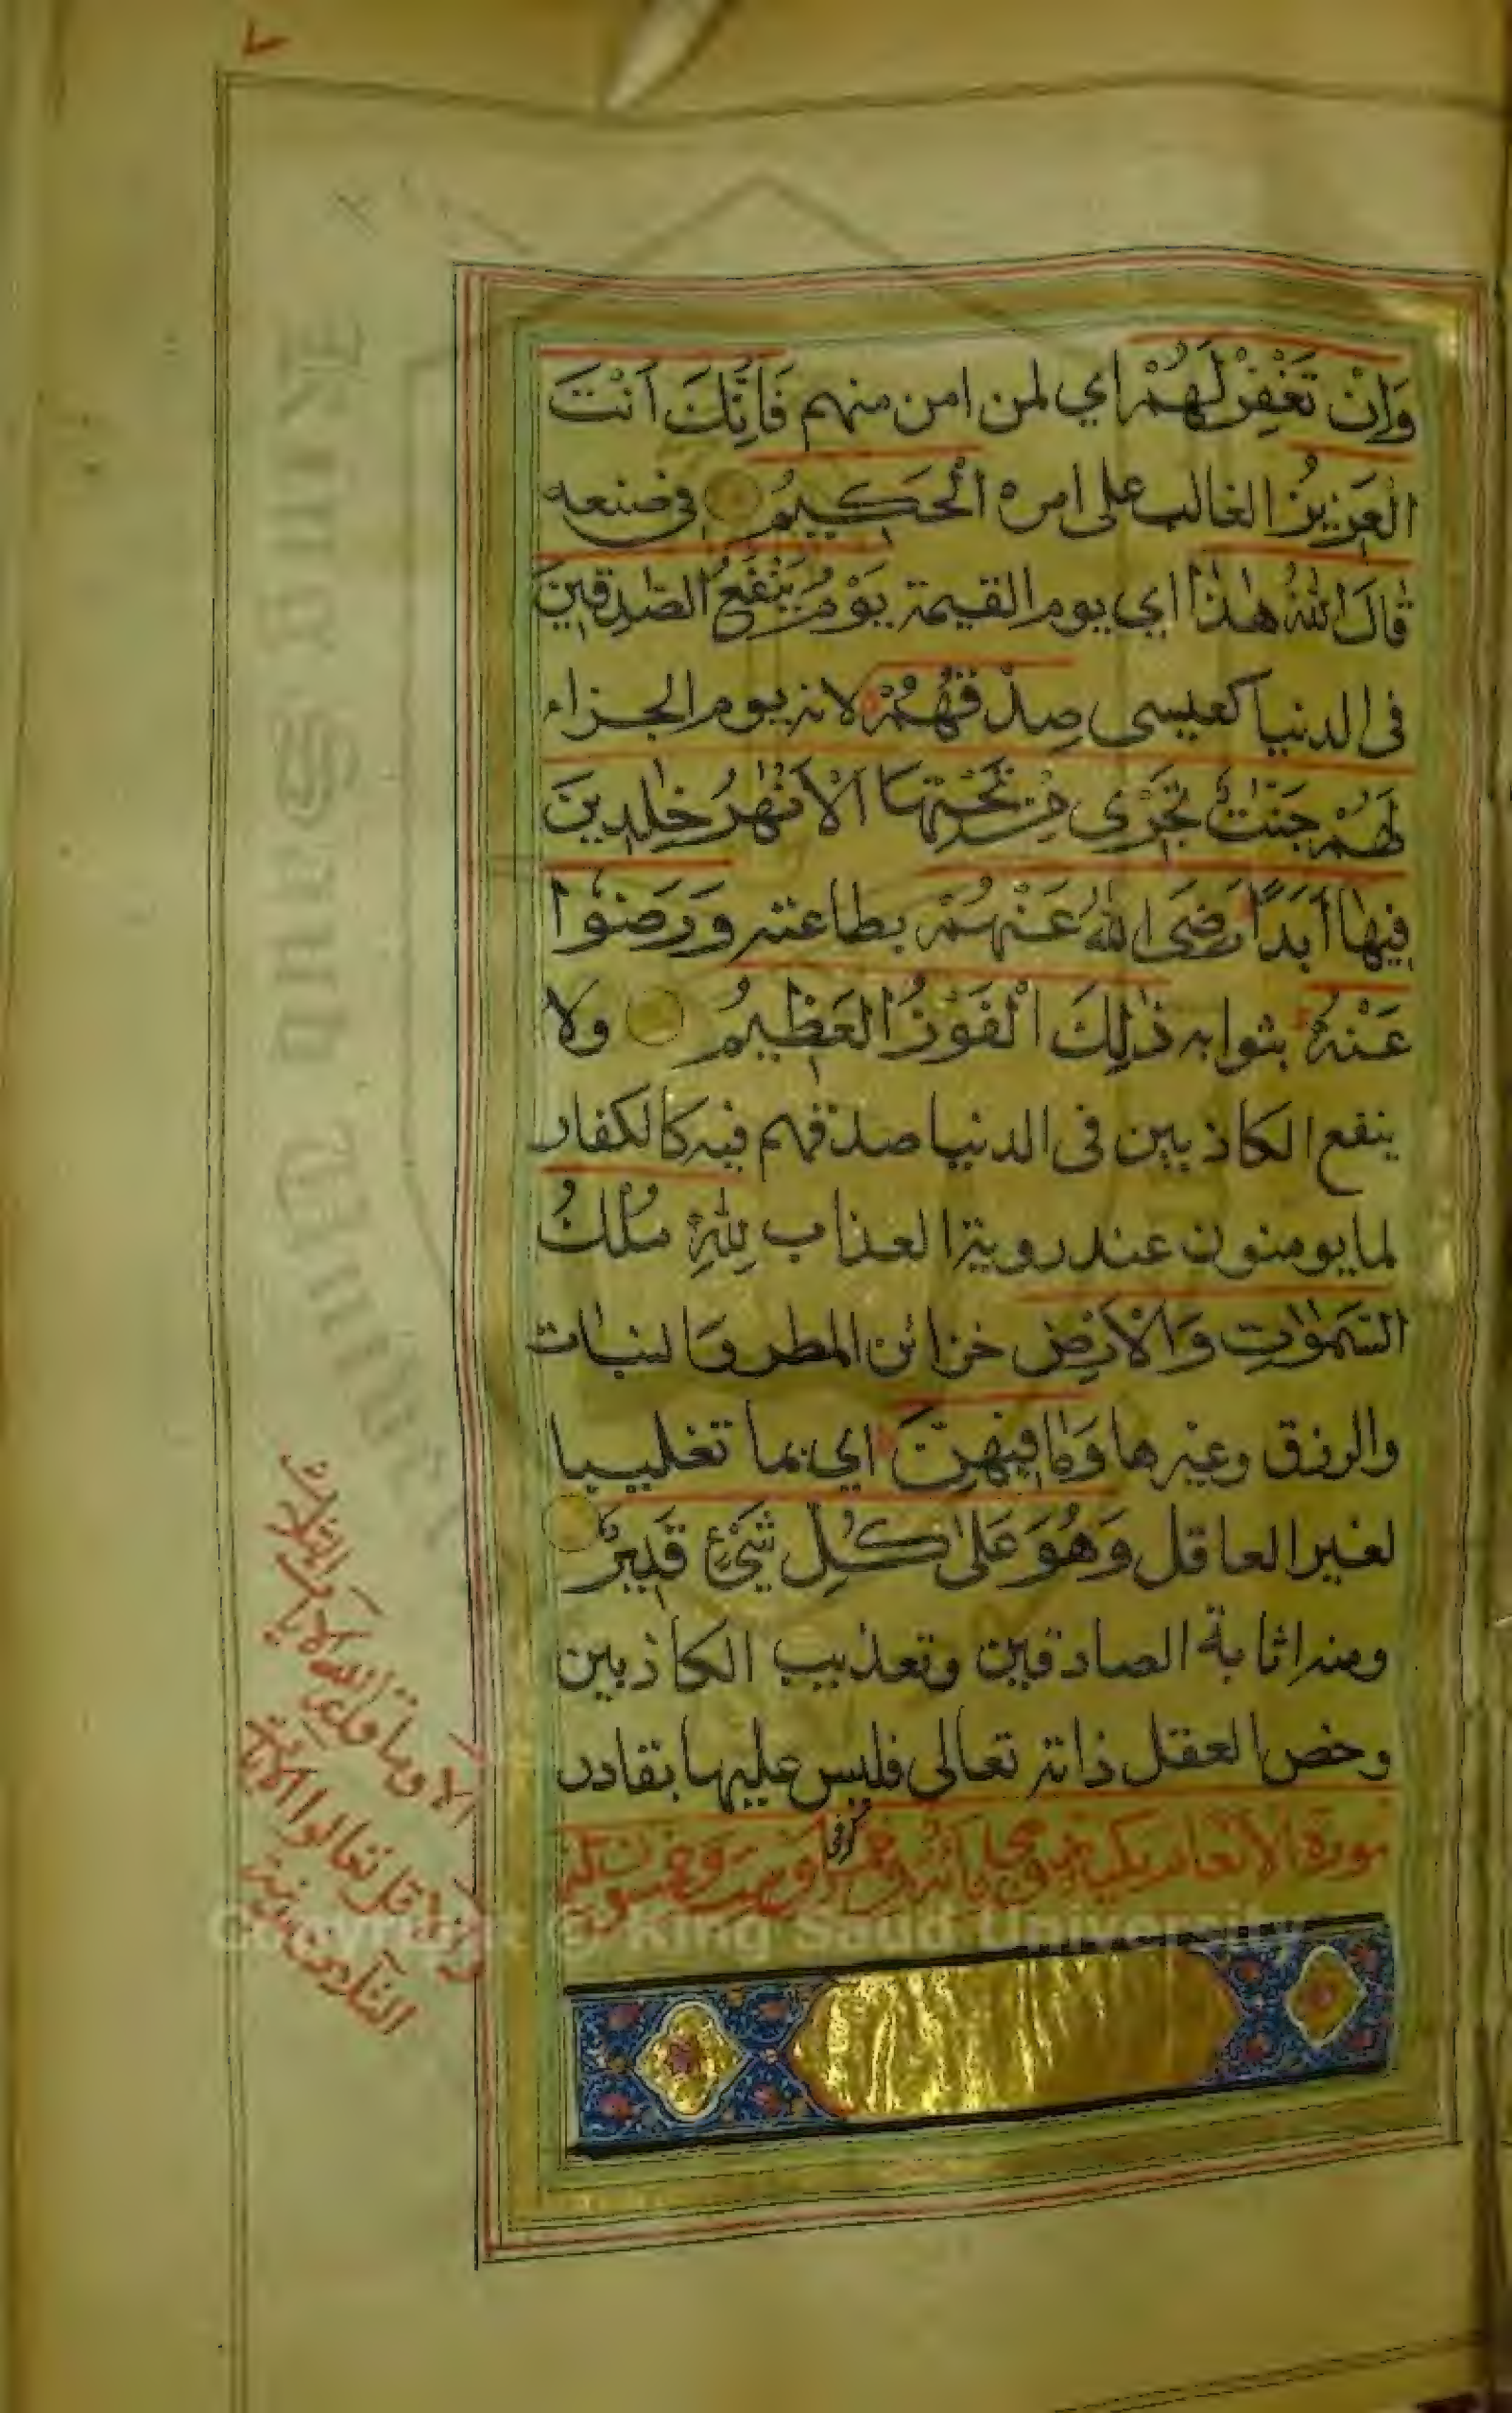 وَاِنْ تَغْفِرْ لَهُمْ اي لمن امن منهم فَاِنَّكَ اَنْتَ
الْعَزِيزُ الغالب على امره الْحَكِيمُ في صنعه
قَالَ اللهُ هٰذَا اي يوم القيمة يَوْمُ يَنْفَعُ الصّٰدِقِينَ
في الدنيا كعيسى صِدْقُهُمْ لانه يوم الجزاء
لَهُمْ جَنّٰتٌ تَجْرِى مِنْ تَحْتِهَا الْاَنْهٰرُ خٰلِدِينَ
فِيهَا اَبَدًا رَضِىَ اللهُ عَنْهُمْ بطاعته وَرَضُوا
عَنْهُ بثوابه ذٰلِكَ الْفَوْزُ الْعَظِيمُ ولا
ينفع الكاذبين في الدنيا صدقهم فيه كالكفار
لما يومنون عند روية العذاب لِلّٰهِ مُلْكُ
السَّمٰوٰتِ وَالْاَرْضِ خزائن المطر والنبات
والرزق وغيرها وَمَا فِيهِنَّ اي بما تغليبا
لغير العاقل وَهُوَ عَلٰى كُلِّ شَيْءٍ قَدِيرٌ
ومنه اثابة الصادقين وتعذيب الكاذبين
وخص العقل ذاته تعالى فليس عليها بقادر
سورة الانعام مكية وهي مائة وخمس وست وخمسون اية
كوفي
الا وما قدروا الله الايات الثلاث
والا قل تعالوا الايات
الثلاث مدينة
٧
Copyright © King Saud University
King Saud University